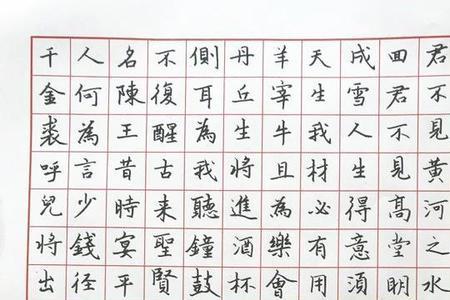 君不見黃河之水
囬君不見髙堂明
成雪人生得意湏
天生我材必有用
羊宰牛且為樂會
丹丘生將進酒杯
側耳為我聽鐘鼓
不復醒古来聖賢
名陳王昔時宴平
人何為言少錢径
千金裘呼兒將出